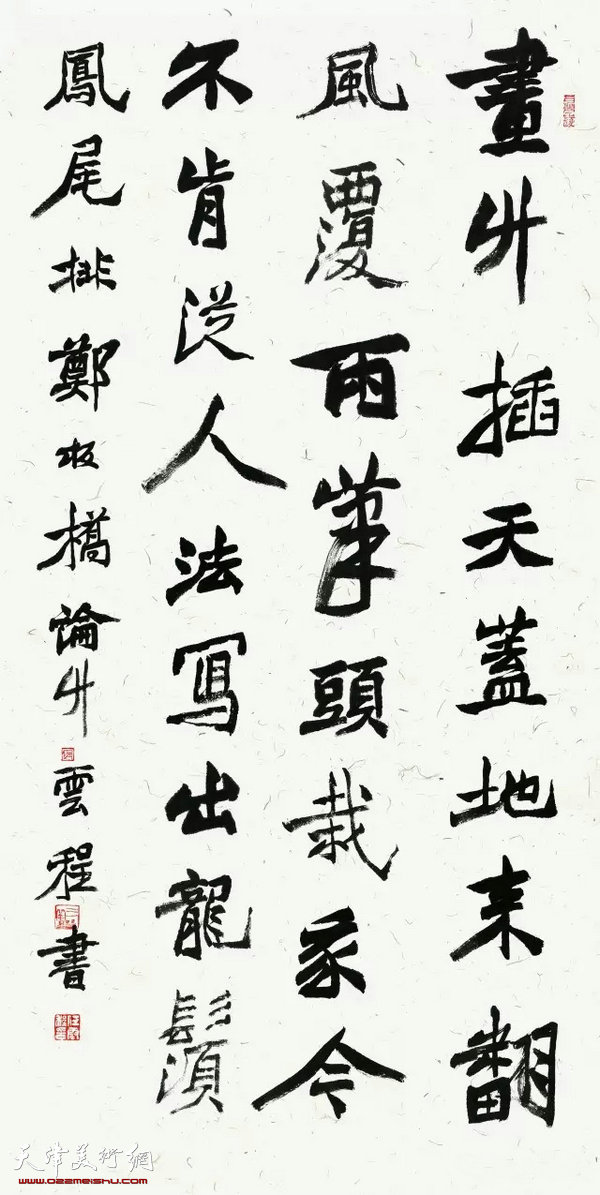 畫竹插天蓋地來翻
風覆雨筆頭栽我今
不肯從人法寫出龍鬚
鳳尾排鄭板橋論竹雲程書
天津美術網
www.022meishu.com